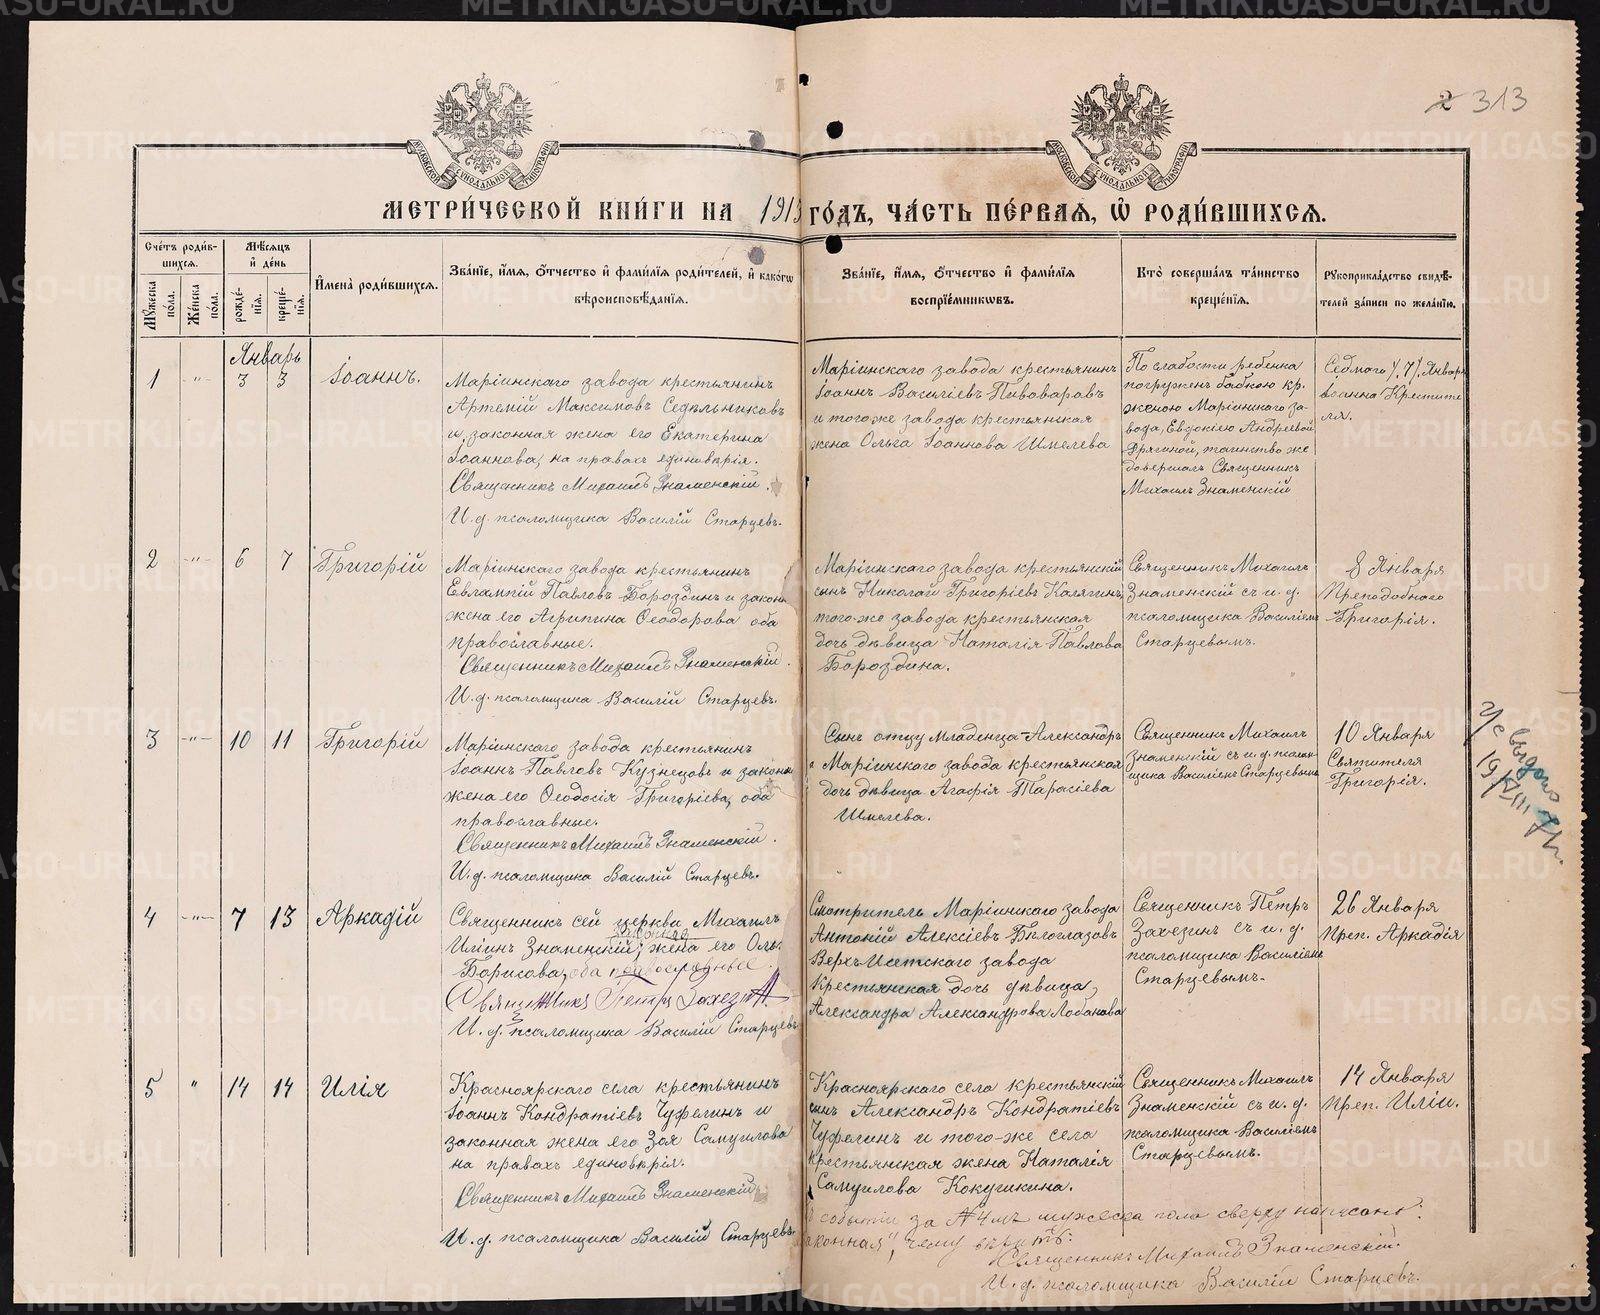 2 313
МЕТРИ́ЧЕСКОЙ КНИ́ГИ НА 1913 ГО́ДЪ, ЧА́СТЬ ПЕ́РВАЯ, Ѡ РОДИ́ВШИХСЯ.
Сче́тъ роди́в-
шихся.
Мꙋ́жеска по́ла.
Же́нска по́ла.
Мѣ́сяцъ
и҆ де́нь
рожде́-
нїя.
креще́-
нїя.
И҆мена̀ роди́вшихся.
Зва́нїе, и҆́мя, ѻ҆́тчество и҆ фами́лїя роди́телей, и҆ како́гѡ
вѣроисповѣ́данїя.
Зва́нїе, и҆́мя, ѻ҆́тчество и҆ фами́лїя
воспрїе́мникѡвъ.
Кто̀ соверша́лъ та́инство
креще́нїя.
Рꙋкоприкла́дство свидѣ́-
телей за́писи по жела́нїю.
Январь
1 -"- 3 3 Іоаннъ.
Маріинскаго завода крестьянинъ
Артемій Максимовъ Седельниковъ
и законная жена его Екатерина
Іоаннова, на правахъ единоверія.
Священникъ Михаилъ Знаменскій.
И.д. псаломщика Василій Старцевъ.
Маріинскаго завода крестьянинъ
Іоаннъ Василіевъ Пивоваровъ
и того же завода крестьянская
жена Ольга Іоаннова Шмелева
По слабости ребенка
погруженъ бабкою кр.
женою Маріинскаго за-
вода, Евдокіею Андреевой
Дрягиной, таинство же
довершалъ Священникъ
Михаилъ Знаменскій
Седмого /.7/. Января
Іоанна Крестите
ля.
2 -"- 6 7 Григорій
Маріинскаго завода крестьянинъ
Евлампій Павловъ Бороздинъ и законн
жена его Агрипина Ѳеодорова оба
православные.
Священникъ Михаилъ Знаменскій.
И.д. псаломщика Василій Старцевъ.
Маріинскаго завода крестьянскій
сынъ Николай Григоріевъ Калягинъ,
того-же завода крестьянская
дочь девица Наталія Павлова
Бороздина.
Священникъ Михаилъ
Знаменскій съ и.д.
псаломщика Василіемъ
Старцевымъ.
8 Января
Преподобнаго
Григорія.
3 -"- 10 11 Григорій
Маріинскаго завода крестьянинъ
Іоаннъ Павловъ Кузнецовъ и законн
жена его Ѳеодосія Григоріева, оба
православные.
Священникъ Михаилъ Знаменскій.
И.д. псаломщика Василій Старцевъ.
Сынъ отцу младенца Александръ
и Маріинскаго завода крестьянская
дочь девица Агафія Тарасіева
Шмелева.
Священникъ Михаилъ
Знаменскій съ и.д. псалом-
щика Василіемъ Старцевымъ
10 Января
Святителя
Григорія.
4 -"- 7 13 Аркадій
Священникъ сей церкви Михаилъ
законная
Иліинъ Знаменскій; жена его Ольга
Борисова, оба православные.
Священникъ Петръ Захезинъ.
И.д. псаломщика Василій Старцевъ
Смотритель Маріинскаго завода
Антоній Алексіевъ Белоглазовъ
Верхъ-Исетскаго завода
крестьянская дочь девица,
Александра Александрова Лобанова
Священникъ Петръ
Захезинъ съ и.д.
псаломщика Василіемъ
Старцевымъ.
26 Января
Преп. Аркадія
5 " 14 14 Илія
Красноярскаго села крестьянинъ
Іоаннъ Кондратіевъ Чуфелинъ и
законная жена его Зоя Самуилова
на правахъ единоверія.
Священникъ Михаилъ Знаменскій
И.д. псаломщика Василій Старцевъ
Красноярскаго села крестьянскій
сынъ Александръ Кондратіевъ
Чуфелинъ и того-же села
крестьянская жена Наталія
Самуилова Кокушкина.
Священникъ Михаилъ
Знаменскій съ и.д.
псаломщика Василіемъ
Старцевымъ.
14 Января
Преп. Иліи.
событіи за №4мъ мужеска пола сверху написано:
законная", чему верить:
Священникъ Михаилъ Знаменскій.
И.д. псаломщика Василій Старцевъ.
METRIKI.GASO-URAL.RU